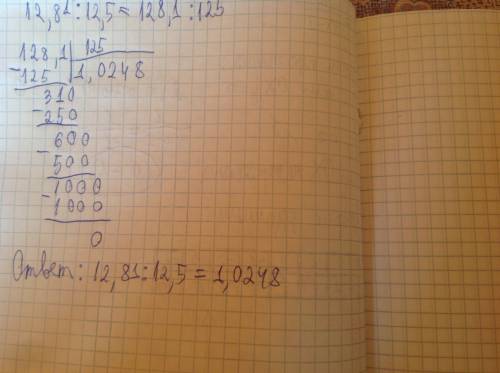 12,81:12,5=128,1:125
128,1 125
-125 1,0248
310
-250
600
-500
1000
-1000
0
Ответ: 12,81:12,5=1,0248